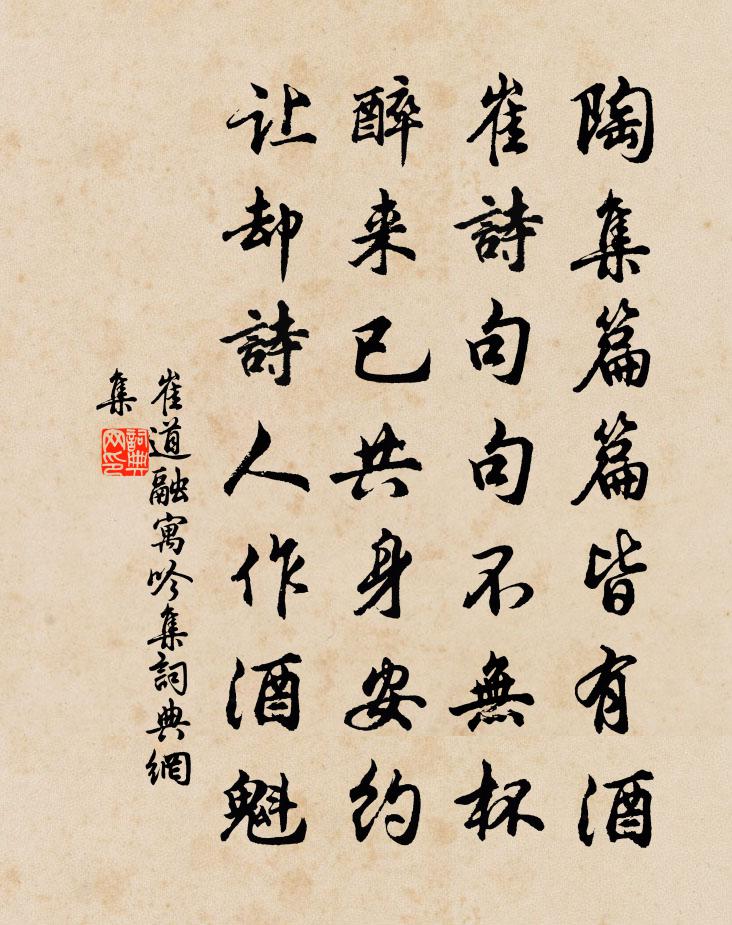 陶集篇篇皆有酒
崔詩句句不無杯
醉来已共身安約
让却詩人作酒魁
崔道融寓吟集詞典網
集
詞典
网印